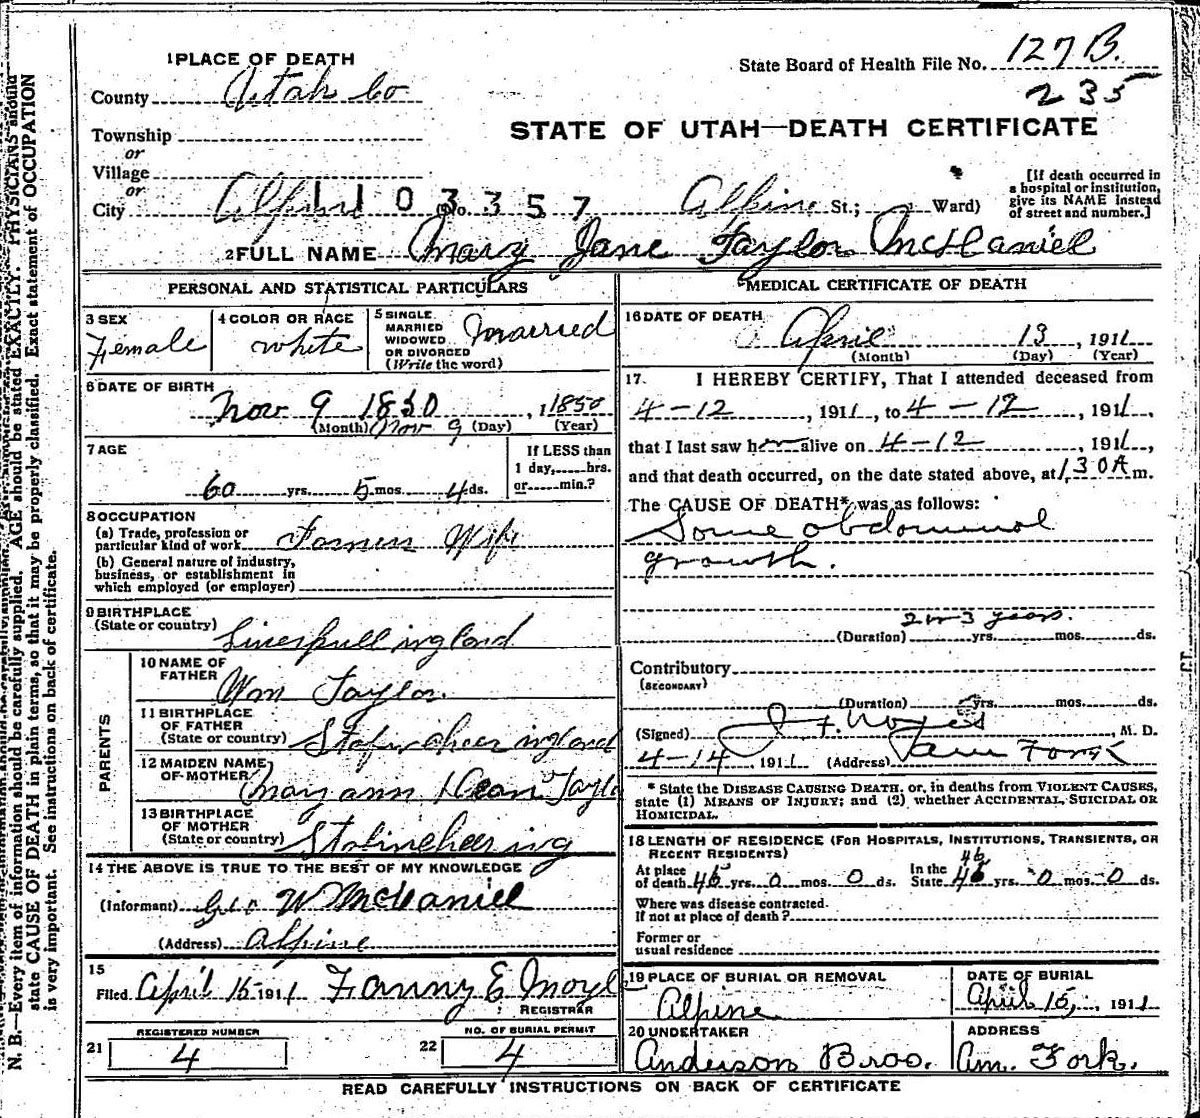 1 PLACE OF DEATH
State Board of Health File No. 127 B.
County Utah Co
235
Township
STATE OF UTAH—DEATH CERTIFICATE
or
Village
or
City Alpine No. Alpine St.; Ward)
1103357
[If death occurred in
a hospital or institution,
give its NAME instead
of street and number.]
2 FULL NAME Mary Jane Taylor McDaniel
PERSONAL AND STATISTICAL PARTICULARS
3 SEX
Female
4 COLOR OR RACE
white
5 SINGLE
MARRIED
WIDOWED
OR DIVORCED
(Write the word)
Married
6 DATE OF BIRTH
Nov 9 1850, 1 1850
(Month) Nov 9 (Day) (Year)
7 AGE
60 yrs. 5 mos. 4 ds.
If LESS than
1 day, hrs.
or min.?
8 OCCUPATION
(a) Trade, profession or
particular kind of work Wife
(b) General nature of industry,
business, or establishment in
which employed (or employer)
9 BIRTHPLACE
(State or country) Liverpull ingland
PARENTS
10 NAME OF
FATHER Wm Taylor
11 BIRTHPLACE
OF FATHER
(State or country) ingland
12 MAIDEN NAME
OF MOTHER Mary ann Dean Taylo
13 BIRTHPLACE
OF MOTHER
(State or country) ing
14 THE ABOVE IS TRUE TO THE BEST OF MY KNOWLEDGE
(Informant) Geo W McDaniel
(Address) Alpine
15
Filed April 15 1911 Fanny E Moyl
REGISTRAR
REGISTERED NUMBER
21 4
NO. OF BURIAL PERMIT
22 4
MEDICAL CERTIFICATE OF DEATH
16 DATE OF DEATH
April 13, 1911
(Month) (Day) (Year)
17. I HEREBY CERTIFY, That I attended deceased from
4-12, 1911, to 4-12, 1911,
that I last saw her alive on 4-12, 1911,
and that death occurred, on the date stated above, at 1,30 A m.
The CAUSE OF DEATH* was as follows:
Some abdominal
growth.
2 or 3 years.
(Duration) yrs. mos. ds.
Contributory
(SECONDARY)
(Duration) yrs. mos. ds.
(Signed) J F Noyes, M. D.
4-14, 1911 (Address) Fork
* State the DISEASE CAUSING DEATH, or, in deaths from VIOLENT CAUSES,
state (1) MEANS OF INJURY; and (2) whether ACCIDENTAL, SUICIDAL OR
HOMICIDAL.
18 LENGTH OF RESIDENCE (FOR HOSPITALS, INSTITUTIONS, TRANSIENTS, OR
RECENT RESIDENTS)
46
At place
of death 46 yrs. 0 mos. 0 ds.
In the
State 46 yrs. 0 mos. 0 ds.
Where was disease contracted.
If not at place of death?
Former or
usual residence
19 PLACE OF BURIAL OR REMOVAL
Alpine
DATE OF BURIAL
April 15, 1911
20 UNDERTAKER
Anderson Bros.
ADDRESS
Am. Fork.
READ CAREFULLY INSTRUCTIONS ON BACK OF CERTIFICATE
N. B.—Every item of information should be carefully supplied. AGE should be stated EXACTLY. PHYSICIANS should
state CAUSE OF DEATH in plain terms, so that it may be properly classified. Exact statement of OCCUPATION
is very important. See instructions on back of certificate.